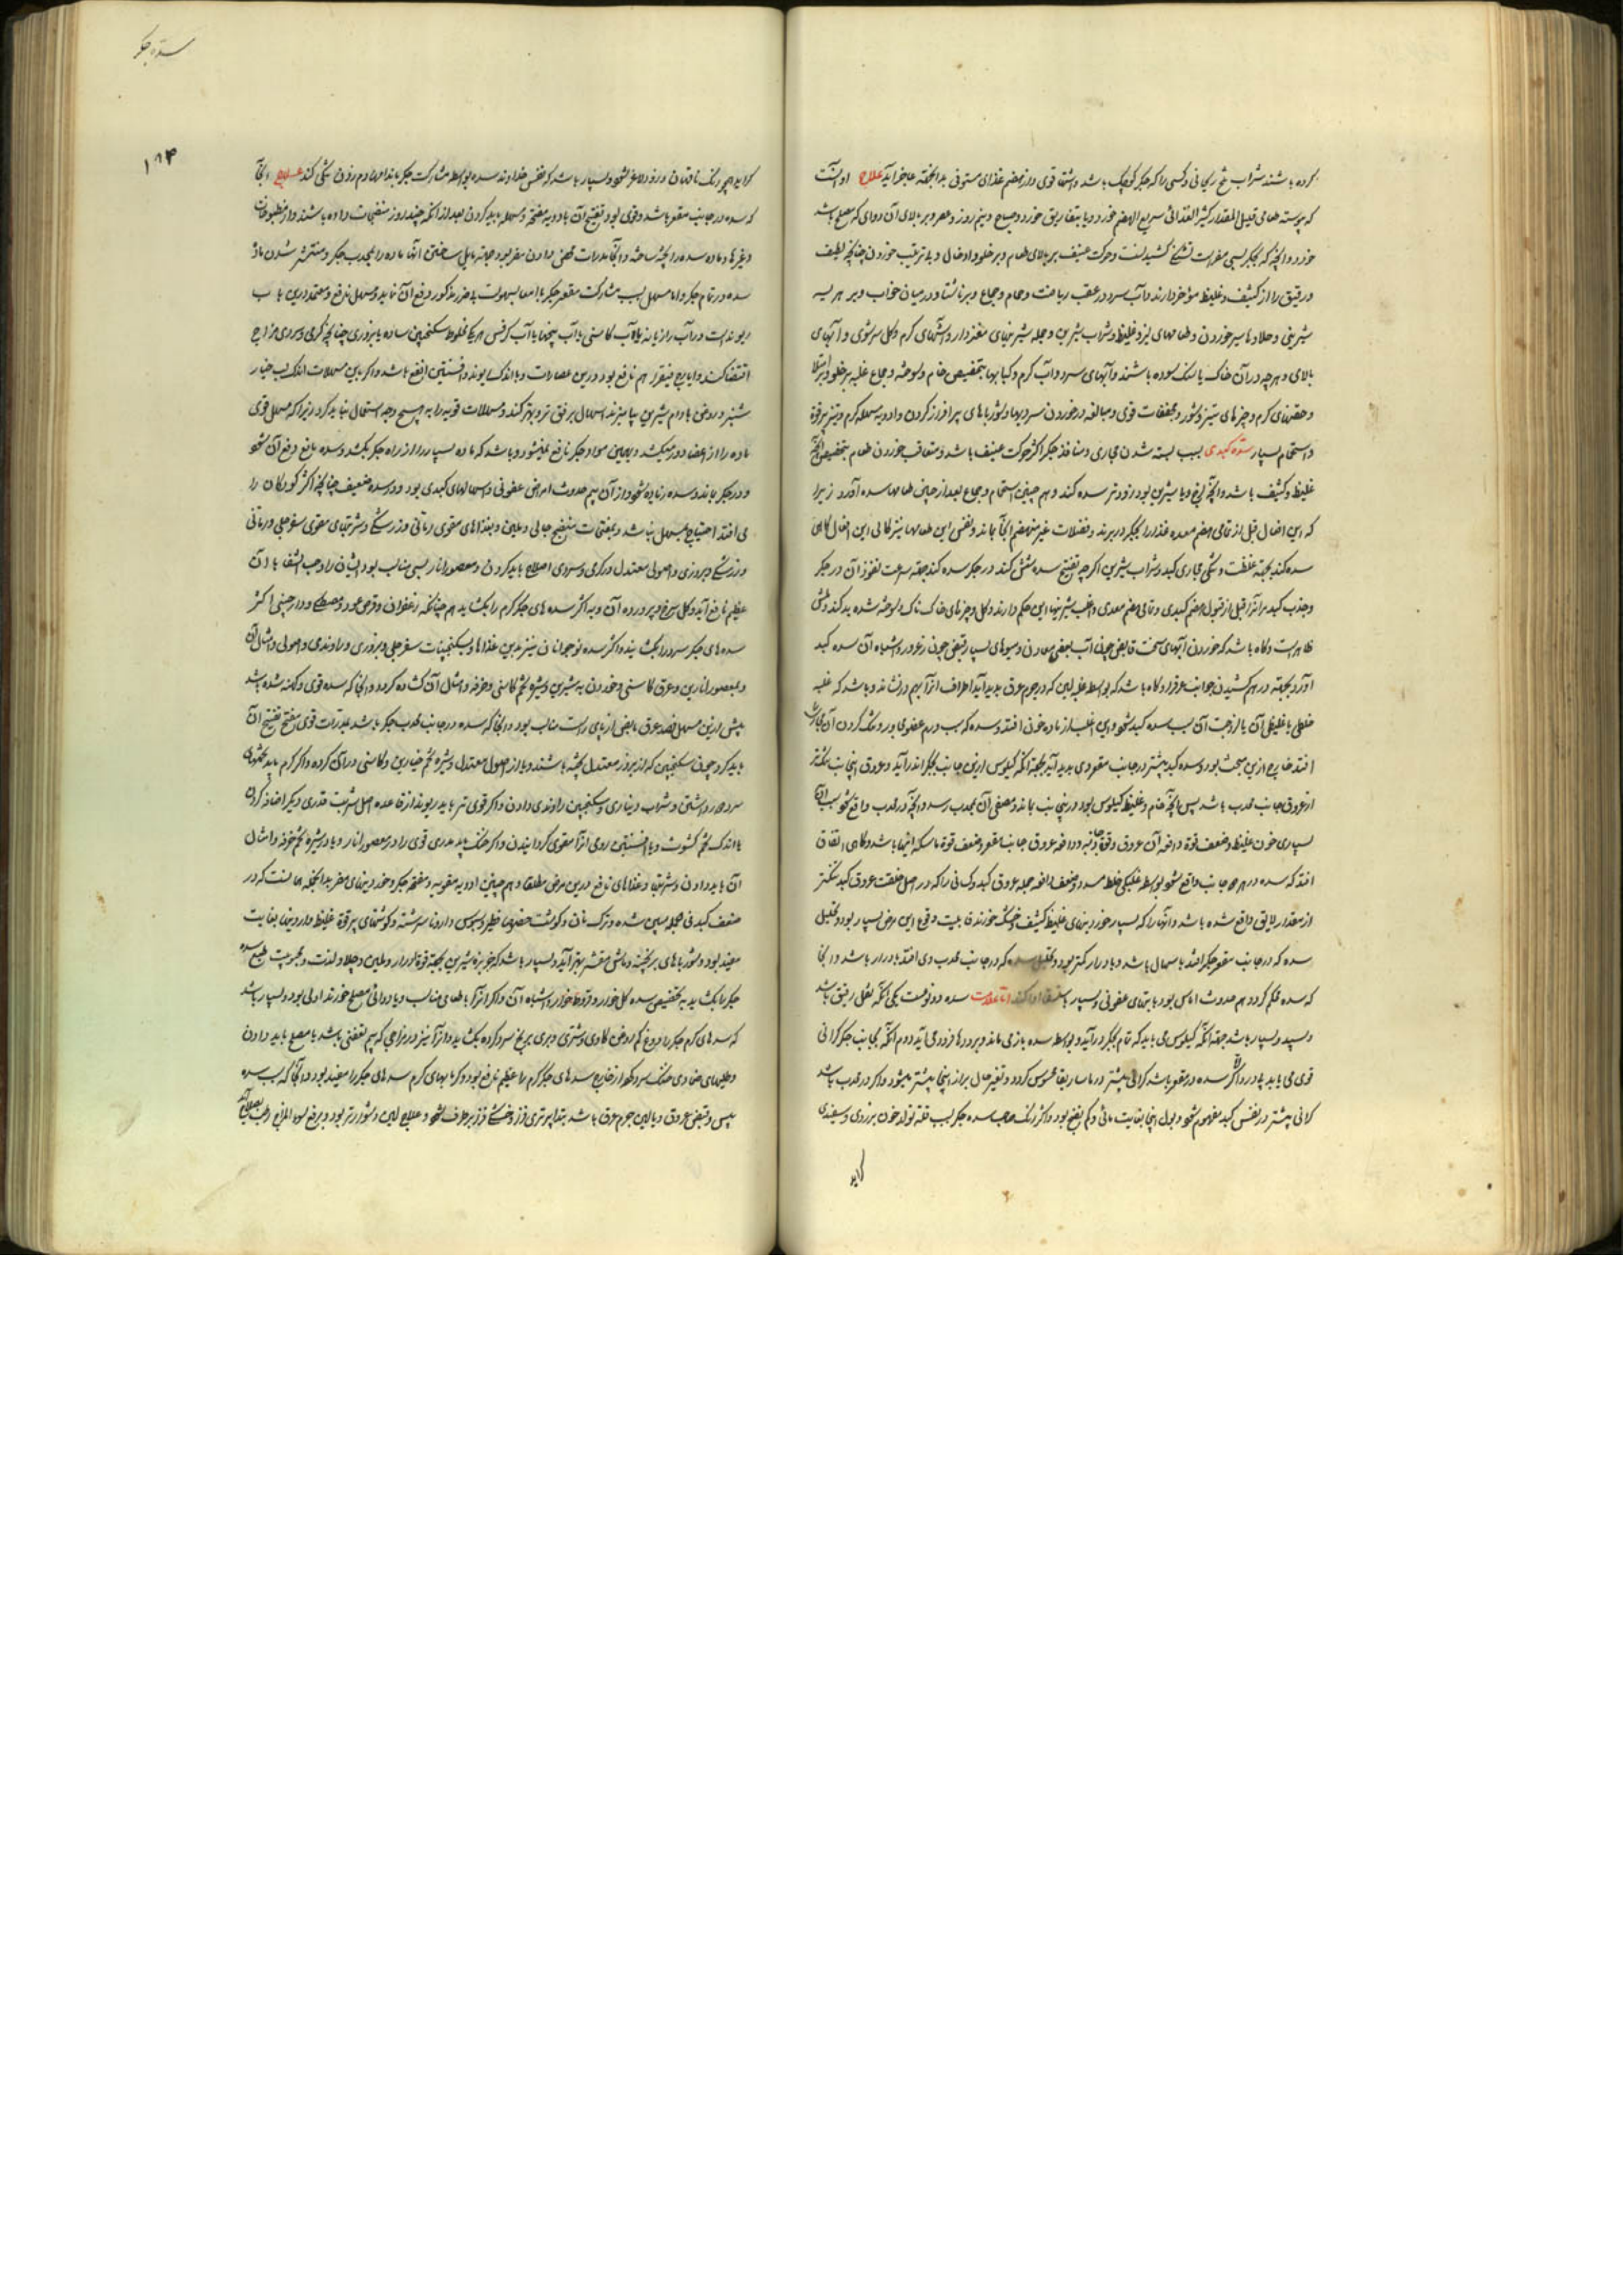 کرده باشند شراب ریحانی و کسی را که جگر کوچک باشد و اشتها قوی و از هضم غذای مستوفی علاج او آنست
که پیوسته طعامی قلیل المقدار کثیر الغذائی سریع الهضم خورد و یا بتفاریق خورد و صباح و نیم روز و عصر و بر بالای آن دوای که مصلح باشد
خورد و آنچه که بجگر بسی مضر است و حرکت عنیف بر بالای طعام و بر خلو و ادخال و بد ترتیب خوردن چنانچه لطیف
و رقیق را از کثیف و غلیظ مؤخر دارند و آب سرد در عقب ریاضت و حمام و جماع و بر ناشتا و در میان خواب و بر هریسه
شیرینی و حلاوتها سیر خوردن و طعامهای لزج و غلیظ و شراب شیرین و جمله شیرینهای مغزدار و آشهای گرم و کل سرشوی و آبهای
بالای و هر چه در آن خاک یا سنگ سوده باشند و آبهای سرد و آب گرم و کبابها بتخصیص خام و سوخته و جماع علیه بر خلو
و حقنهای گرم و چیزهای تیز و شور و مجففات قوی و مبالغه در خوردن سردیها و شورباهای پر افزار کردن و ادویه مسهله گرم و تیز پر قوة
و استحمام بسیار سده کبدی بسبب بسته شدن مجاری و منافذ جگر اکثر حرکت عنیف باشد و متعاقب خوردن طعام بتخصیص آنچه
غلیظ و کثیف باشد و آنچه لزج و یا شیرین بود زودتر سده کند و هم چنین استحمام و جماع بعد از چنین طعامها سده آورد زیرا
که این افعال قبل از تمامی هضم معده غذا را بجگر در برند و فضلات غیر منهضم آنجا بماند و نفس این طعامها نیز کالی این افعال گاهی
سده کند بجهة غلظت و تنگی مجاری کبد و شراب شیرین اگر چه تفتیح سده شش کند در جگر سده کند جهة سرعت نفوذ آن در جگر
و جذب کبد مر آنرا قبل از قبول هضم کبدی و تمامی هضم معدی و اغلب شیرینیها این حکم دارند و کل و چیزهای خاکناک و سوخته شده بد کند
ظاهر است و گاه باشد که خوردن آبهای سخت قابض چون آب بعضی معادن و میوهای بسیار قبض چون زعرور و اشباه آن سده کبد
آورد بجهة در هم کشیدن جوانب عروق و گاه باشد که بواسطه غلبه یبس که در جرم عروق پدید آید اطراف آنرا بهم درنشاند و باشد که غلبه
خلطی یا غلیظی آن یا لزوجت آن سبب سده کبد شود و این اغلب از ماده خون افتد و سده که سبب ورم عضوی مجاور و تنگ کردن آن مجاریست
افتد خارج ازین مبحث بود و سده کبد بیشتر در جانب مقعر وی پدید آید بجهة آنکه کیلوس ازین جانب بجگر اندر آید و عروق این جانب تنگتر
از عروق جانب محدب باشد پس آنچه خام و غلیظ کیلوس بود درین جانب بماند و مصفی آن بمحدب رسد و آنچه در محدب واقع شود سبب آن
بسیاری خون غلیظ و ضعف قوة دافعه آن عروق و قوة جاذبه و دافعه عروق جانب مقعر و ضعف قوة ماسکه اینها باشد و گاهی اتفاق
افتد که سده در هر دو جانب واقع شود بواسطه غلیظی خلط مسدد و ضعف دافعه جمله عروق کبد و کسانی را که در اصل خلقت عروق کبد تنگتر
از مقدار لایق واقع شده باشد و آنها را که بسیار خوردنیهای غلیظ کثیف خشک خورند قابلیت وقوع این مرض بسیار بود و تحلیل
سده که در جانب مقعر جگر افتد باسهال باشد و بادرار کمتر بود و تحلیل سده که در جانب محدب وی افتد بادرار باشد و آنجا
که سده محکم گردد هم حدوث آماس بود یا تبهای عفونی و بسیار باستسقا ادا کند اما علامت سده دو نوعست یکی آنکه ثفل رقیق باشد
و سپید و بسیار باشد جهة آنکه کیلوس می باید که تمام بجگر درآید و بواسطه سده باز می ماند و برودها فرود می آید دوم آنکه بجانب جگر گرانی
قوی می یابد بی درد و اگر سده در مقعر باشد گرانی بیشتر در ماساریقا محسوس گردد و تغیر حال براز اینجا بیشتر میشود و اگر در محدب باشد
گرانی بیشتر در نفس کبد مفهوم شود و بول اینجا بغایت مائی و کم نضج بود و اکثر رنگ صاحب سده جگر بسبب قلة تولد خون بزردی و سفیدی
گراید
سده جگر
۱۸۴
گراید همچو رنگ ناقهان و زود لاغر شود و بسیار باشد که نفس خداوند سده بواسطه مشارکت جگر با اندامهای دم زدن تنگی کند علاج آنجا
که سده در جانب مقعر باشد و قوی بود تفتیح آن بادویه مفتحه و مسهله باید کردن بعد از آنکه چند روز منضجات داده باشند و از مطبوخات
و غیرها و ماده سده را پخته ساخته و آنجا مدرات محض دادن مضر بود جهة مایل ساختن آنها ماده را بمحدب جگر و منتشر شدن ماده
سده در تمام جگر و اما مسهل بسبب مشارکت مقعر جگر با امعا بسهولت بی ضرر مذکور دفع آن نماید و مسهل نافع و معتمد درین باب
ریوند است در آب رازیانه یا آب کاسنی یا آب بیخها یا آب کرفس هر یک مخلوط بسکنجبین ساده یا بزوری چنانچه گرمی و سردی مزاج
اقتضا کند و ایارج فیقرا هم نافع بود درین عصارات و با اندک ریوند و افسنتین انفع باشد و اگر باین مسهلات اندک لب خیار
شنبر و روغن بادام شیرین بیامیزند اسهال برفق تر و بهتر کند و مسهلات قویه را به هیچ وجه استعمال نباید کرد زیرا که مسهل قوی
ماده را از اعضا دور میکشد و بهمین سواد جگر نافع نمیشود و باشد که ماده بسیار را از راه جگر بکشد و سده مانع دفع آن شود
و در جگر بماند و سده زیاده شود و از آن بیم حدوث امراض عفونی و اسهالهای کبدی بود و در سده ضعیف چنانچه اکثر کودکان را
می افتد احتیاج بمسهل نباشد و بمفتحات منضج جالی و ملین و بغذاهای مقوی رمانی و زرشکی و شربتهای مقوی سفرجلی و رمانی
و زرشکی و بزوری و اصولی معتدل در گرمی و سردی اصلاح باید کردن و معصور انار بسی مناسب بود ایشان را و حب الشفا با آن
عظیم نافع آید و کل سرخ و پرورده آن و به اکثر سده های جگر گرم را بگشاید هم چنانکه زعفران و قرص عود و مصطکی و دارچینی اکثر
سده های جگر سرد را بگشایند و اکثر سده نوجوانان نیز بدین غذاها و بسکنجبینات سفرجلی و بزوری و راوندی و اصولی و امثال آن
و بمعصور انارین و عرق کاسنی و خوردن به شیرین و شیره تخم کاسنی و خرفه و امثال آن گشاده گردد و آنجا که سده قوی و کهنه شده باشد
پیش ازین مسهل فصد عرق مابض از پای راست مناسب بود و آنجا که سده در جانب محدب جگر باشد بمدرات قوی مفتح تفتیح آن
باید کرد چون سکنجبین که از بزور معتدل پخته باشند و یا از اصول معتدل و شیره تخم خیارین و کاسنی در آن کرده و اگر گرم باید تخمهای
سرد در داشتن و شراب دیناری و سکنجبین راوندی دادن و اگر قوی تر باید ریوند از قاعده اصل شربت قدری دیگر اضافه کردن
با اندک تخم کشوث و یا افسنتین رومی آنرا مقوی گردانیدن و اگر خنک باید مدری قوی را در معصور انار و یا در شیره تخم خرفه و امثال
آن باید دادن و شربتها و غذاهای نافع درین مرض مطلقا و هم چنین ادویه مقویه و مفتحه جگر و خوردنیهای مضر بدانجهة همانست که در
ضعف کبد فی الجمله مبین شده و ترک نان و گوشت فطیر و سبوس دار و ناسرشته و گوشتهای پر قوة غلیظ بغایت
مفید بود و شورباهای برنجینه و ماش مقشر بهتر آید و بسیار باشد که خربزه شیرین بجهة قوة ادرار و ملین و جلا و لذت و محبوبیت طبع سده
جگر را بگشاید به تخصیص سده کل خورد و اشباه آن و اگر آنرا با طعامی مناسب و یا دوائی مصلح خورند اولی بود و بسیار باشد
که سدهای گرم جگر را دوغ کم روغن گاوی و شتری و بزی به یخ سرد کرده بگشاید و آنرا نیز در مزاجی که بیم تعفنی باشد با مصلح باید دادن
و طلیهای ضمادی خنک سرد که از خارج سدهای جگر گرم را عظیم نافع بود و گرمابهای گرم سدهای جگر را مفید بود و آنجا که سبب سده
یبس و قبض عروق و یا لاین جرم عروق باشد بتدابیر تری فزا و خشکی برطرف شود و علاج این دشوارتر بود و به رفع سوء المزاج